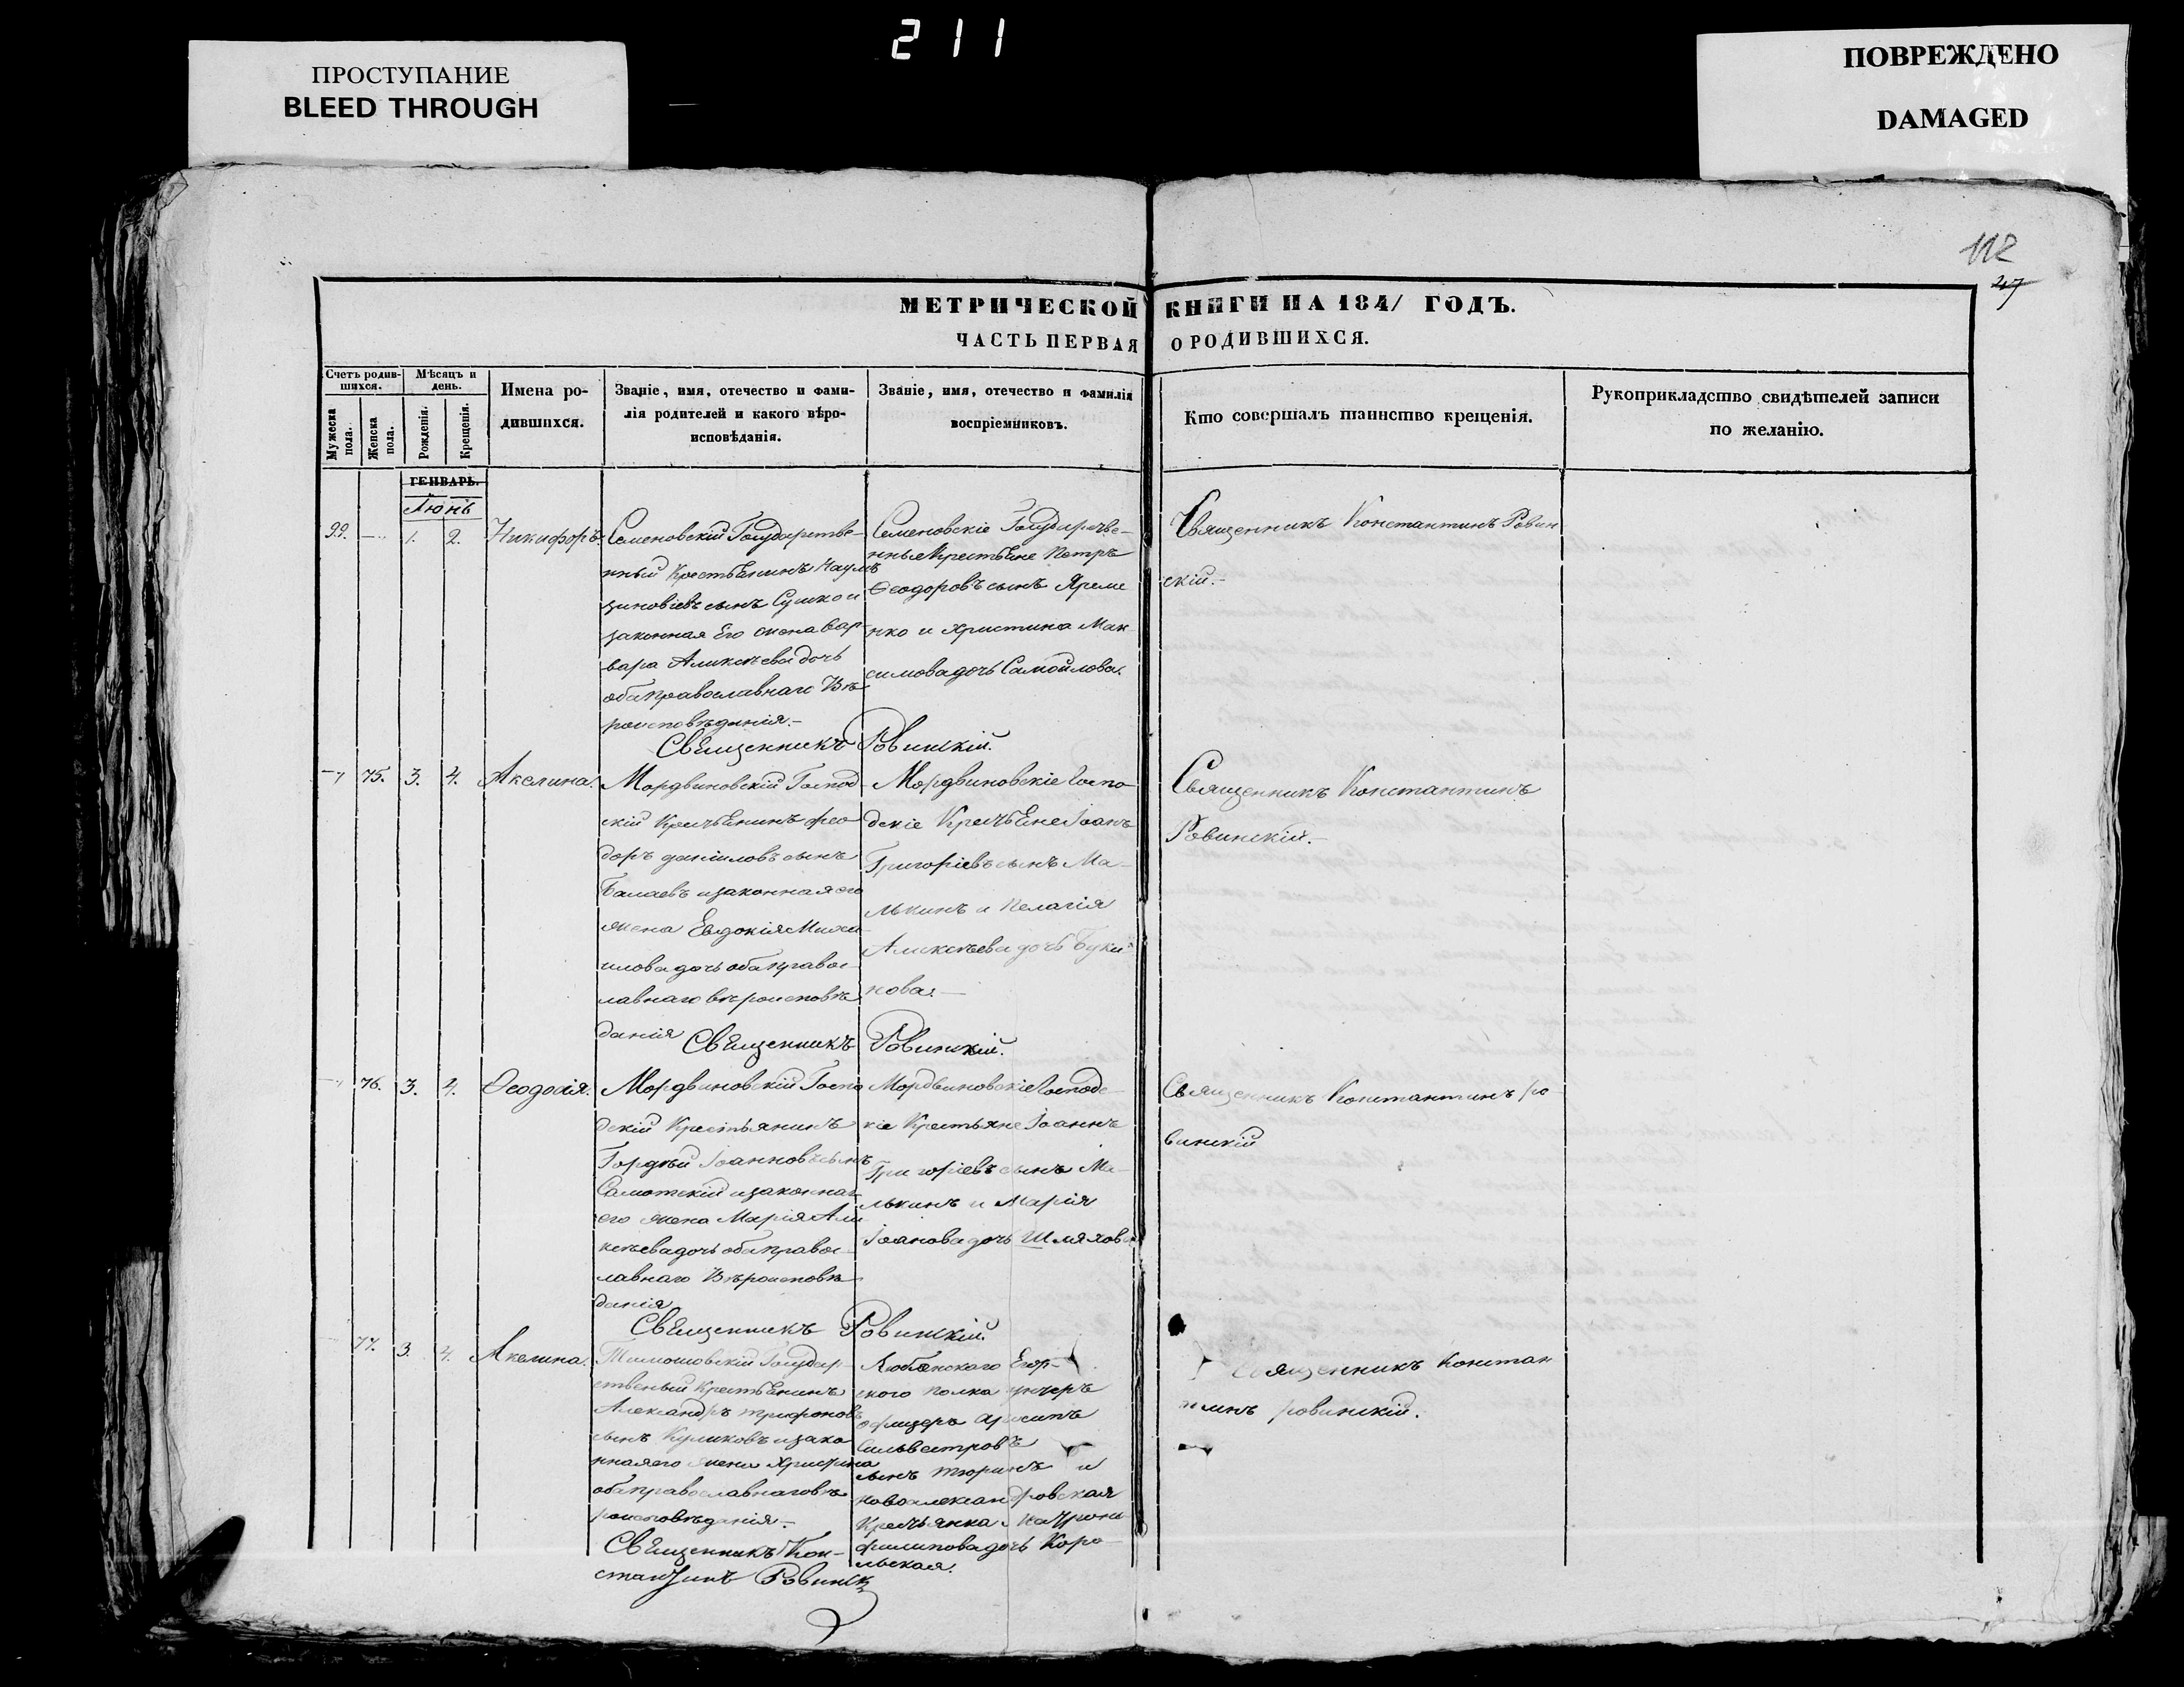 211
ПРОСТУПАНИЕ
BLEED THROUGH
ПОВРЕЖДЕНО
DAMAGED
112
47
МЕТРИЧЕСКОЙ КНИГИ НА 1841 ГОДЪ.
ЧАСТЬ ПЕРВАЯ О РОДИВШИХСЯ.
Счетъ родив-
шихся.
Мѣсяцъ и
день.
Мужеска
пола.
Женска
пола.
Рожденія.
Крещенія.
Имена ро-
дившихся.
Званіе, имя, отечество и фами-
лія родителей и какого вѣро-
исповѣданія.
Званіе, имя, отечество и фамилія
воспріемниковъ.
Кто совершалъ таинство крещенія.
Рукоприкладство свидѣтелей записи
по желанію.
ГЕНВАРЬ.
Іюнь
99. — 1. 2. Никифоръ.
Семеновскій Государстве-
нный Крестьянинъ Наумъ
зиновіевъ сынъ Сушко и
законная Его жена Вар-
вара Алексѣева дочь
оба православнаго Вѣ
роисповѣданія.-
Семеновскіе Государстве-
нные Крестьяне Петръ
Ѳеодоровъ сынъ Яреме
нко и Христина Мак-
симова дочь Самойлова.
Священникъ Константинъ Ровин
скій.-
Священникъ Ровинскій.
— 75. 3. 4. Акелина.
Мордвиновскій Господ
скій Крестьянинъ фео
доръ даніиловъ сынъ
Балаевъ и законная его
жена Евдокія Михаи
илова дочь оба правос-
лавнаго вѣроисповѣ
данія
Мордвиновскіе Госпо-
дскіе Крестьяне Іоанъ
Григоріевъ сынъ Ма-
лькинъ и Пелагія
Алексѣева дочь Буки-
нова.-
Священникъ Константинъ
Ровинскій.-
Священникъ Ровинскій.
76. 3. 4. Ѳеодосія.
Мордвиновскій Госпо
дскій Крестьянинъ
Гордѣй Іоанновъ сынъ
Самотскій и законная
его жена Марія Але
ксѣева дочь оба правос-
лавнаго Вѣроисповѣ
данія
Мордвиновскіе Господс-
кіе Крестьяне Іоаннъ
Григоріевъ сынъ Ма-
лькинъ и Марія
Іоанова дочь Шляхова
Священникъ Константинъ ро
винскій
Священникъ Ровинскій.
77. 3. 4. Акелина.
Тимошовскій Государ-
ственый Крестьянинъ
Александръ трифоновъ
сынъ Куликовъ и зако
нная его жена Христина
оба православнаго вѣ
роисповѣданія.-
Егор-
ского полка унтеръ
офицеръ
Сильвестровъ
сынъ тюринъ и
новоалександровская
Крестьянка
филипова дочь Коро-
льская.
Священникъ Констан
тинъ ровинскій.
Священникъ Кон-
стантинъ Ровинск